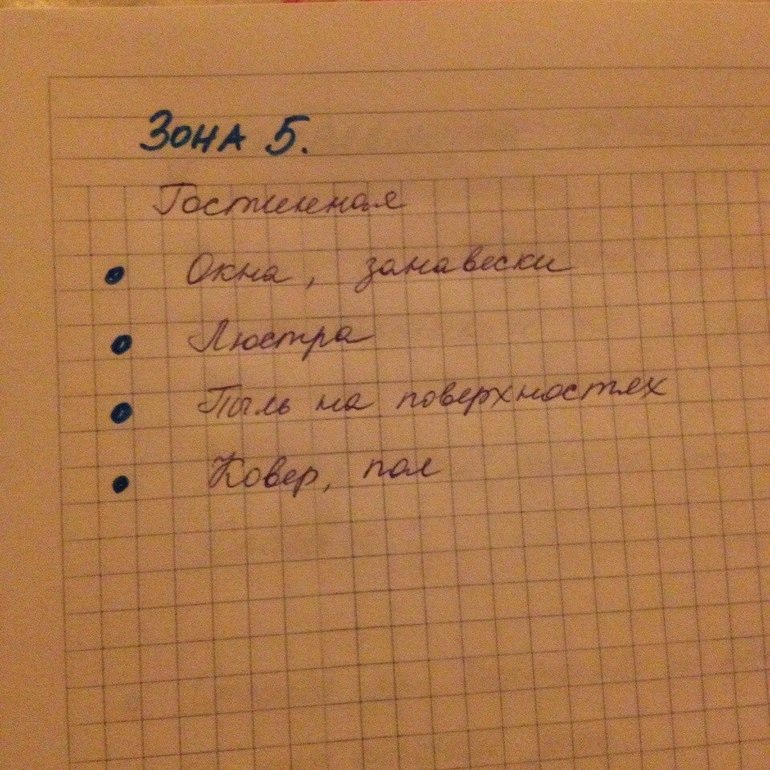 Зона 5.
Гостинная
Окна, занавески
Люстра
Пыль на поверхностях
Ковер, пол